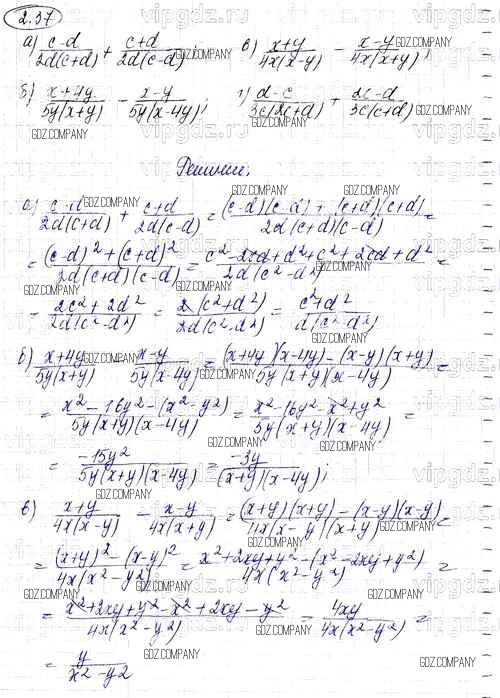 2.37
а) (c-d)/(2d(c+d)) + (c+d)/(2d(c-d)); в) (x+y)/(4x(x-y)) - (x-y)/(4x(x+y));
б) (x+4y)/(5y(x+y)) - (x-y)/(5y(x-4y)); г) (d-c)/(3c(2c+d)) + (2c-d)/(3c(c+d))
Решение:
а) (c-d)/(2d(c+d)) + (c+d)/(2d(c-d)) = ((c-d)(c-d) + (c+d)(c+d))/(2d(c+d)(c-d)) =
= ((c-d)²+(c+d)²)/(2d(c+d)(c-d)) = (c²-2cd+d²+c²+2cd+d²)/(2d(c²-d²)) =
= (2c²+2d²)/(2d(c²-d²)) = (2(c²+d²))/(2d(c²-d²)) = (c²+d²)/(d(c²-d²))
б) (x+4y)/(5y(x+y)) - (x-y)/(5y(x-4y)) = ((x+4y)(x-4y)-(x-y)(x+y))/(5y(x+y)(x-4y)) =
= (x²-16y²-(x²-y²))/(5y(x+y)(x-4y)) = (x²-16y²-x²+y²)/(5y(x+y)(x-4y)) =
= (-15y²)/(5y(x+y)(x-4y)) = (-3y)/((x+y)(x-4y));
в) (x+y)/(4x(x-y)) - (x-y)/(4x(x+y)) = ((x+y)(x+y)-(x-y)(x-y))/(4x(x-y)(x+y)) =
= ((x+y)²-(x-y)²)/(4x(x²-y²)) = (x²+2xy+y²-(x²-2xy+y²))/(4x(x²-y²)) =
= (x²+2xy+y²-x²+2xy-y²)/(4x(x²-y²)) = (4xy)/(4x(x²-y²)) =
= y/(x²-y²)